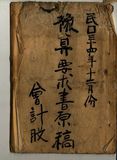 民囗三十四年十二月份
豫算要求書原稿
會計股